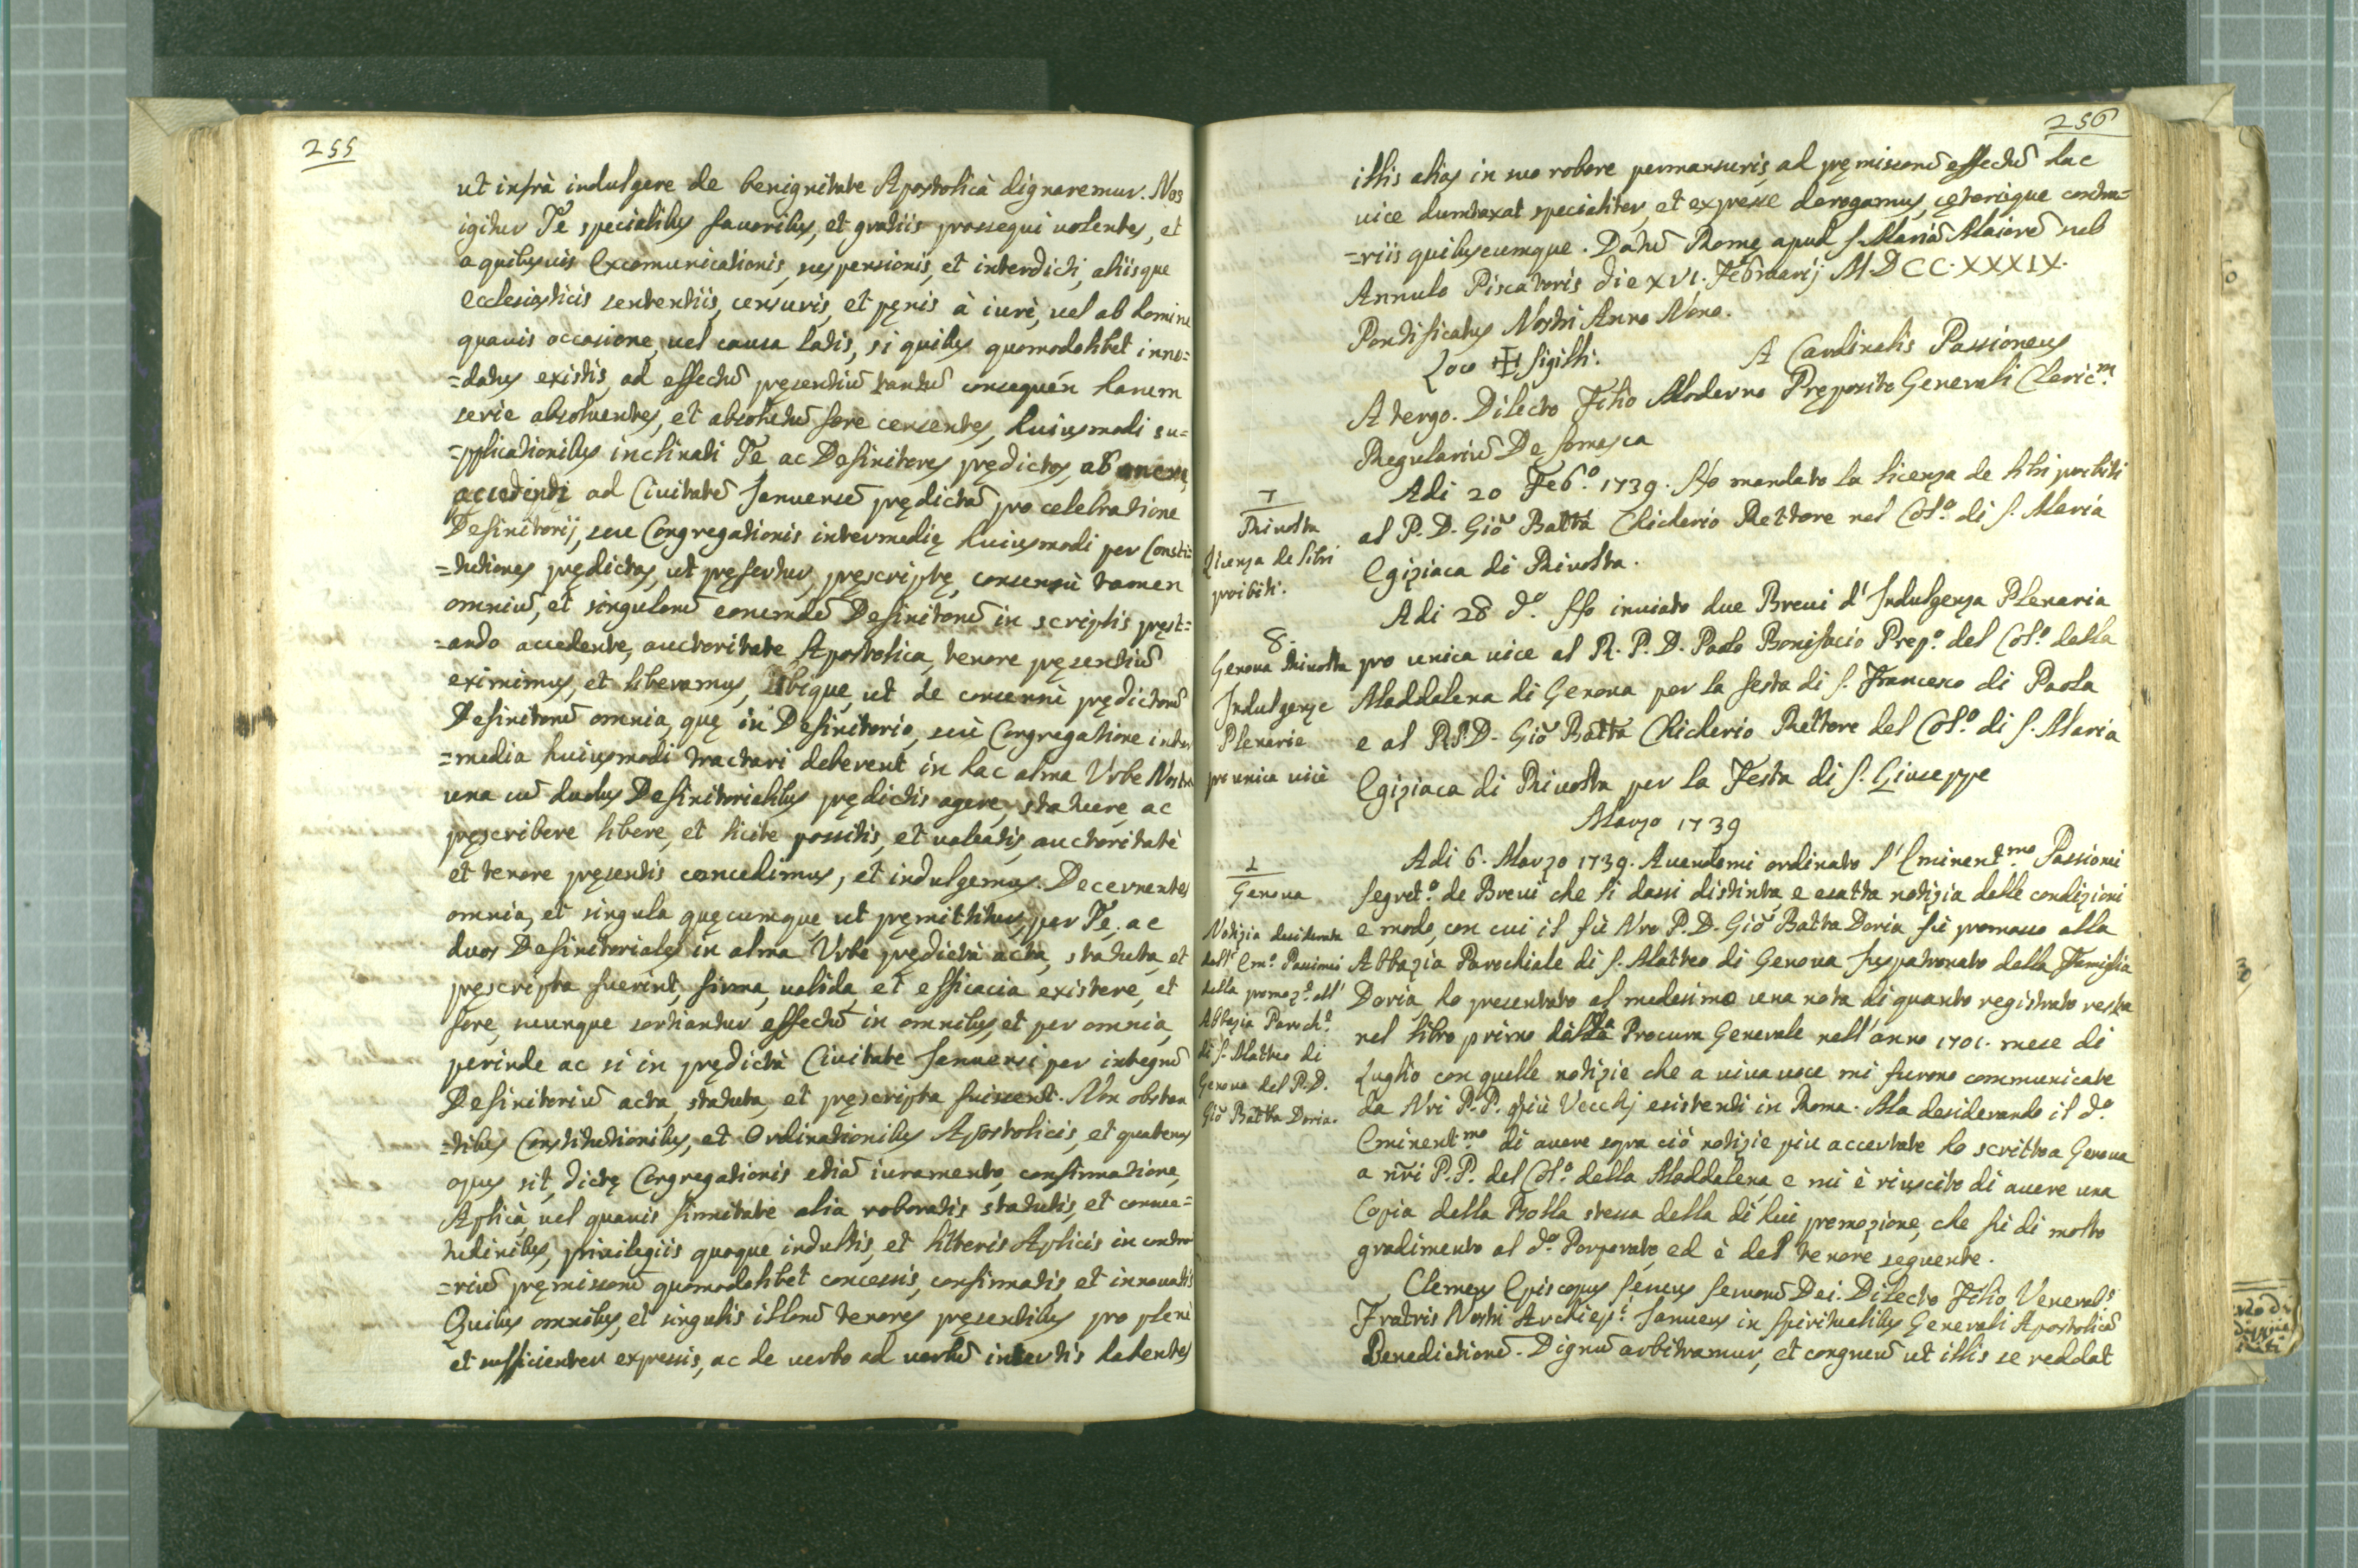 255
ut infrà indulgere de benignitate Apostolicà dignaremur. Nos
igitur Te specialibus fauoribus, et gratiis prossequi uolentes, et
a quibusuis Excomunicationis, suspensionis, et interdicti, aliisque
Ecclesiasticis sententiis, censuris, et pęnis à iurè, uel ab homine
quauis occasione, uel causa latis, si quibus quomodolibet inno=
=datus existis, ad effectũ pręsentiũ tantũ consequeń harum
serie absoluentes, et absolutũ fore censentes, huiusmodi su=
=pplicationibus inclinati Te, ac Definitores prędictos, ab onere
accedendi ad Ciuitatẽ Januensẽ prędictã pro celebratione
Definitorij, seu Congregationis intermedię huiusmodi per Consti=
=tutiones prędictas, ut pręfertur, pręscriptę, consensù tamen
omniũ, et singulorũ eorumdẽ Definitorũ in scriptis pręst=
=ando accedente, auctoritate Apostolica, tenore pręsentiũ
eximimus, et liberamus, Tibique, ut de consensù prędictorũ
Definitorũ omnia, quę in Definitorio, seù Congregatione inter
=media huiusmodi tractari deberent in hac alma Urbe Nostra
una cũ duobus Definitorialibus prędictis agere, statuere, ac
pręscribere libere, et licite possitis, et ualeatis, auctoritatè
et tenore pręsentis concedimus, et indulgemus. Decernentes
omnia, et singula quęcumque, ut pręmittitur, per Te, ac
duos Definitoriales in alma Urbe prędictà acta, statuta, et
pręscripta fuerint, firma, ualida, et efficacia existere, et
fore, suunque sortiantur effectũ in omnibus, et per omnia,
perinde ac si in prędictà Ciuitate Januensi per integrũ
Definitoriũ acta, statuta, et pręscripta fuissent. Non obstan
=tibus Constitutionibus, et Ordinationibus Apostolicis, et quatenus
opus sit, dictę Congregationis etiã iuramento, confirmatione,
Aplicà, uel quauis firmitate alia roboratis statutis, et consue=
tudinibus, priuilegiis quoque indultis, et litteris Aplicis in contra
=riũ pręmissorũ quomodolibet concessis, confirmatis, et innouatis
Quibus omnibus, et singulis illorũ tenores pręsentibus pro plenè
et sufficienter expressis, ac de uerbo ad uerbũ insertis habentes
256
illis alias in suo robore permansuris, ad pręmissorũ effectũ hac
uice dumtaxat specialiter, et expresse derogamus, cęterisque contra=
=riis quibuscumque. Datũ Romę apud S. Mariã Maiorẽ sub
Annulo Piscatoris die XVI. Februarij M.D CC.XXXIX.
Pontificatus Nostri Anno Nono.
Loco ✠ Sigilli. A Cardinalis Passioneus
A tergo. Dilecto Filio Moderno Pręposito Generali Cleric.m
Regulariũ De Somasca
7
Riuolta
Licenza de libri
proibiti.
Adi 20 Feb.o 1739. Ho mandato la licenza de libri proibiti
al P. D. Giõ Battã Chiclerio Rettore nel Col.o di S. Maria
Egiziaca di Riuolta.
8.
Genoua Riuolta
Indulgenze
Plenarie
pro unica uice
Adi 28 d.o Ho inuiato due Breui d'Indulgenza Plenaria
pro unica uice al R. P. D. Paolo Bonifacio Prep.o del Col.o della
Maddalena di Genoua per la festa di S. Francesco di Paola
e al R.P.D. Giõ Battã Chiclerio Rettore del Col.o di S. Maria
Egiziaca di Riuolta per la Festa di S. Giuseppe
Marzo 1739
1
Genoua
Notizia desiderata
dall' Em.o Passionei
della promoz.e all'
Abbazia Paroch.e
di S. Matteo di
Genoua del P. D.
Giõ Batta Doria.
Adi 6. Marzo 1739. Auendomi ordinato l'Eminent.mo Passionei
Segret.o de Breui che li dassi distinta, e esatta notizia delle condizioni
e modo, con cui il fù Nro P. D. Giõ Batta Doria fù promosso alla
Abbazia Parochiale di S. Matteo di Genoua Juspatronato della Famiglia
Doria ho presentato al medesimo una nota di quanto registrato resta
nel libro primo della Procura Generale nell'anno 1701. mese di
Luglio con quelle notizie che a uiua uoce mi furono communicate
da Nri P.P. più Vecchj esistenti in Roma. Ma desiderando il d.o
Eminent.mo di auere sopra ciò notizie piu accertate ho scritto a Genoua
a nr̃i P.P. del Col.o della Maddalena, e mi è riuscito di auere una
Copia della Bolla stessa della di lui promozione, che fù di molto
gradimento al d.o Porporato, ed è del tenore seguente.
Clemens Episcopus seruus seruorũ Dei. Dilecto Filio Venerab.s
Fratris Nostri Archiep.i Januens in spiritualibus Generali Apostolicã
Benedictionẽ. Dignũ arbitramur, et congruũ ut illis se reddat